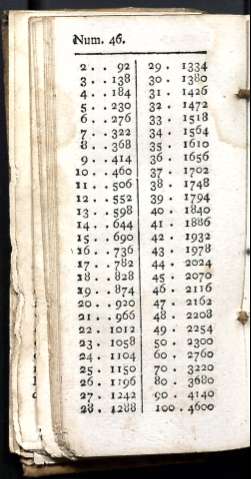 Num. 46.
2 . . 92 29 . 1334
3 . . 138 30 . 1380
4 . . 184 31 . 1426
5 . . 230 32 . 1472
6 . . 276 33 . 1518
7 . . 322 34 . 1564
8 . . 368 35 . 1610
9 . . 414 36 . 1656
10 . . 460 37 . 1702
11 . . 506 38 . 1748
12 . . 552 39 . 1794
13 . . 598 40 . 1840
14 . . 644 41 . 1886
15 . . 690 42 . 1932
16 . . 736 43 . 1978
17 . . 782 44 . 2024
18 . . 828 45 . 2070
19 . . 874 46 . 2116
20 . . 920 47 . 2162
21 . . 966 48 . 2208
22 . 1012 49 . 2254
23 . 1058 50 . 2300
24 . 1104 60 . 2760
25 . 1150 70 . 3220
26 . 1196 80 . 3680
27 . 1242 90 . 4140
28 . 1288 100 . 4600